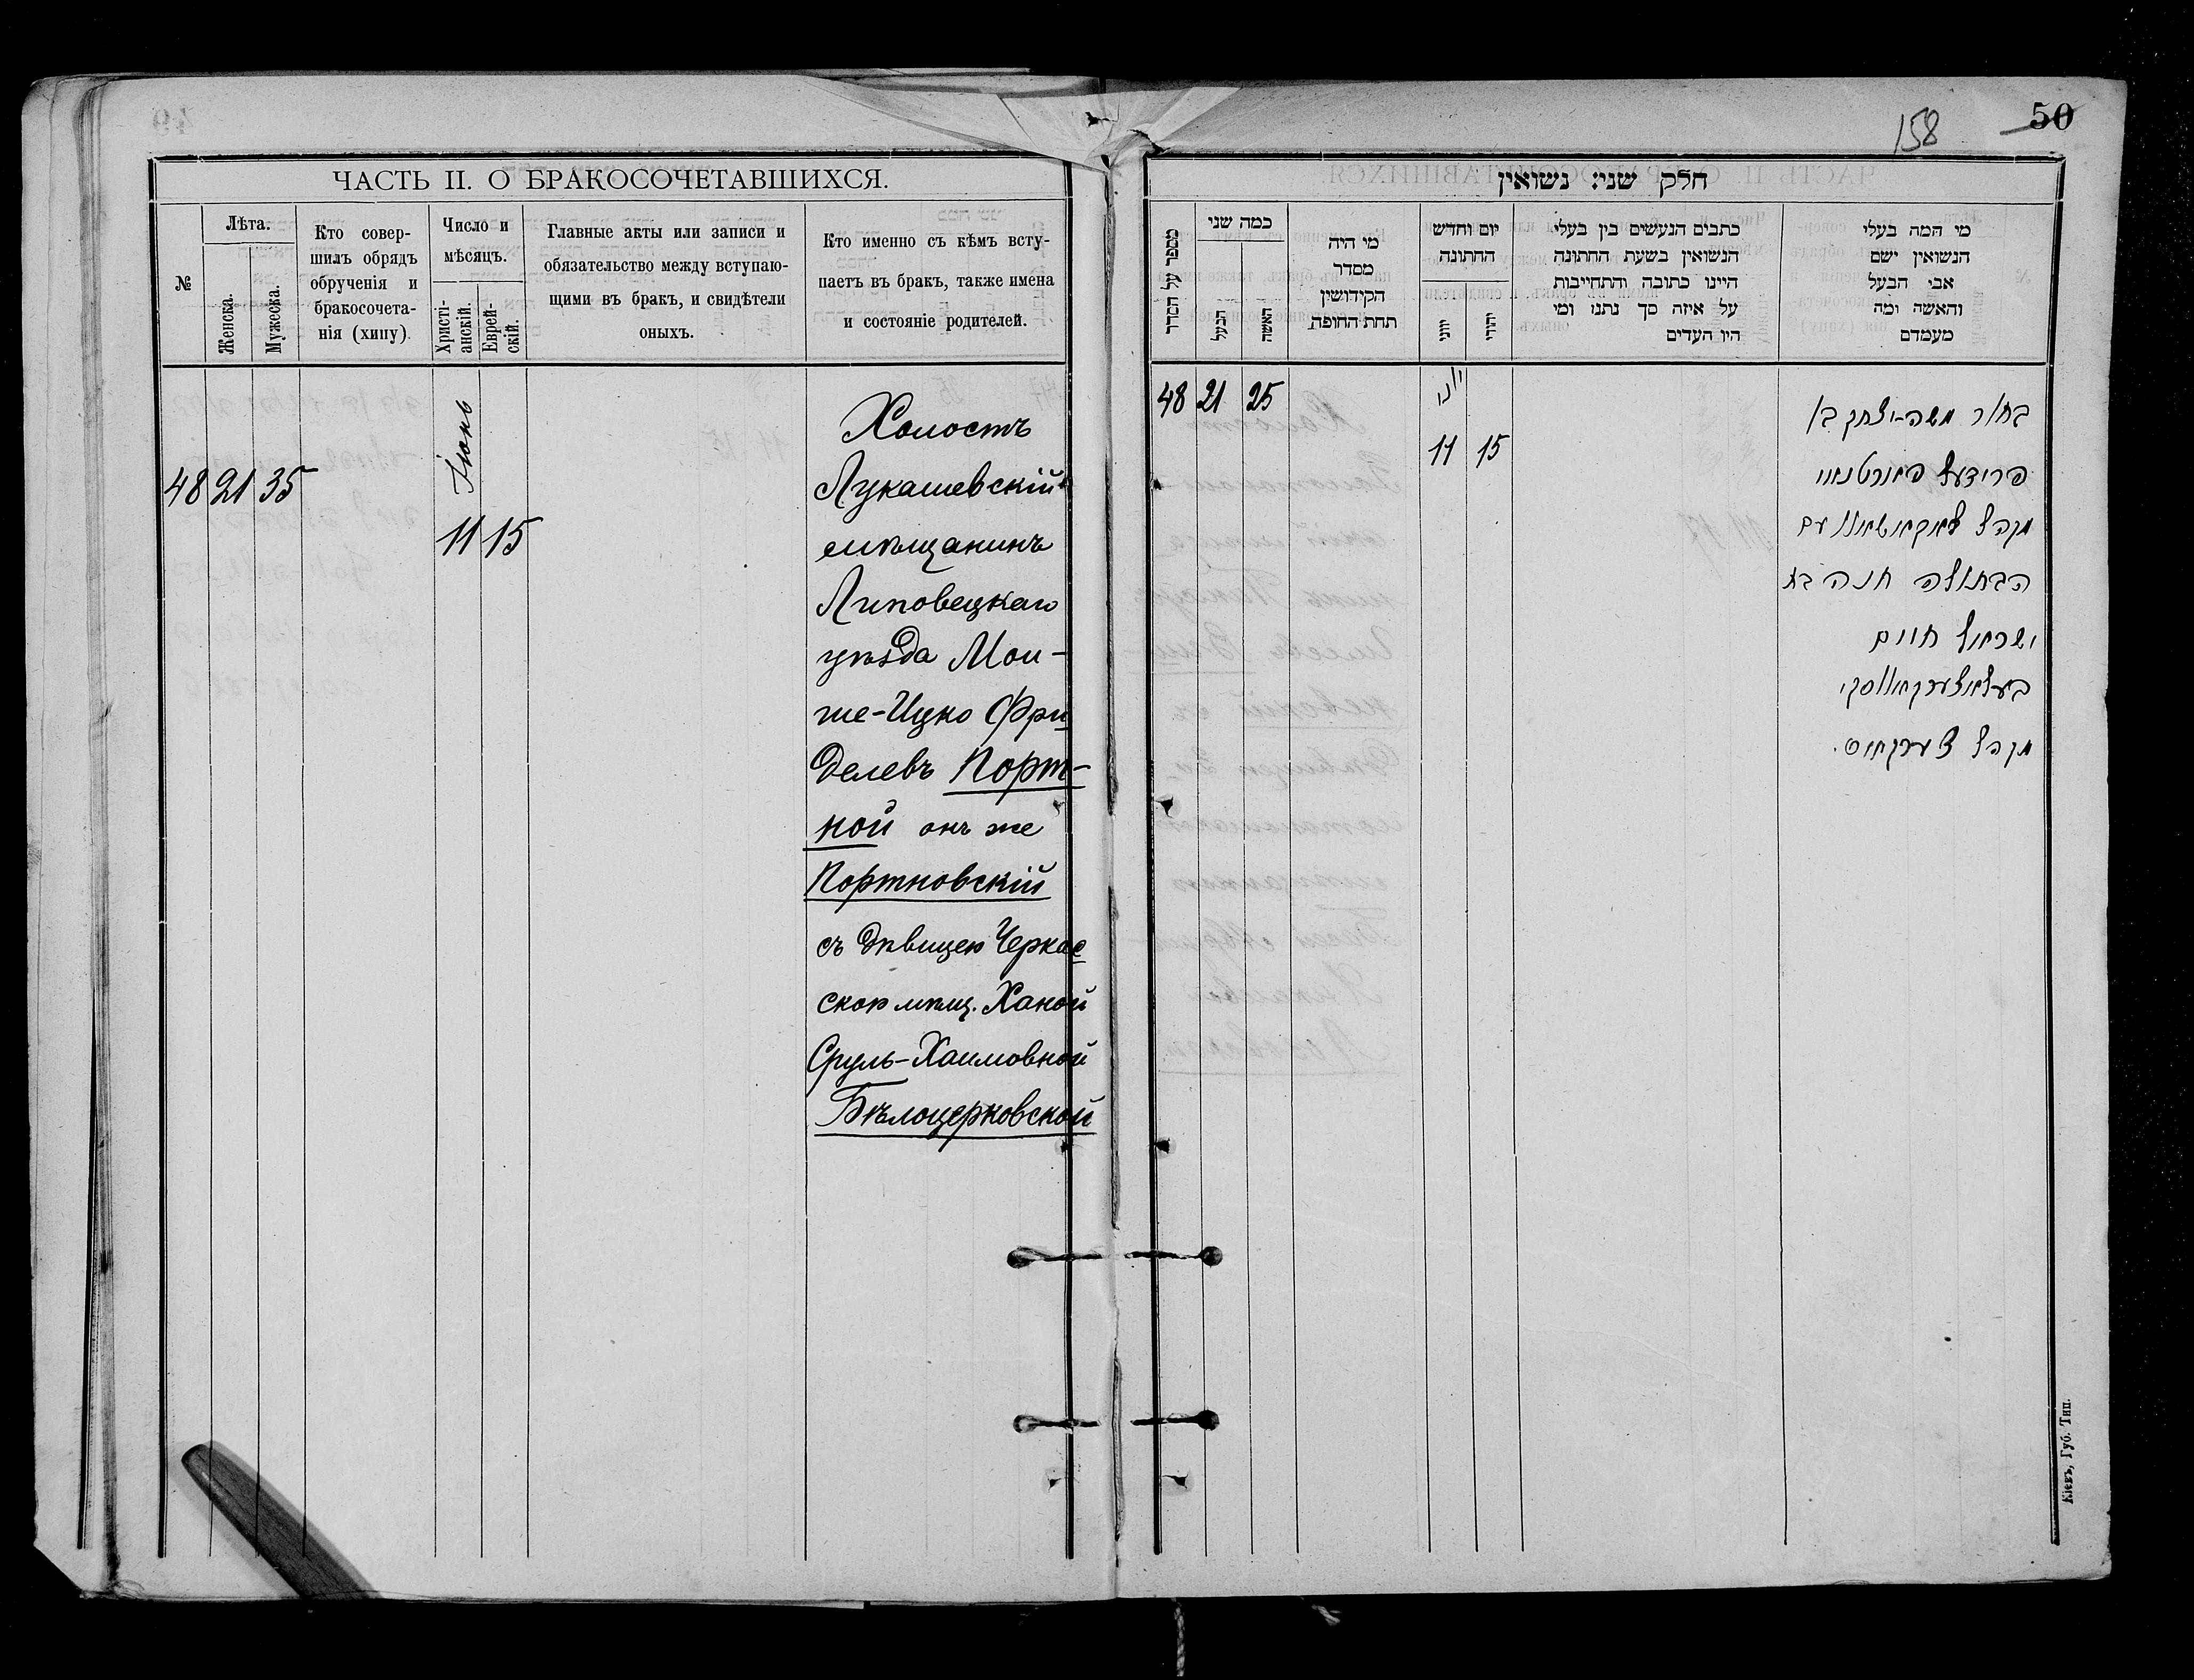 ЧАСТЬ II. О БРАКОСОЧЕТАВШИХСЯ.
№
Лѣта.
Женска.
Мужеска.
Кто совер-
шилъ обрядъ
обрученія и
бракосочета-
нія (хипу)
Число и
мѣсяцъ.
Христі-
анскій.
Еврей-
скій.
Главные акты или записи и
обязательство между вступаю-
щими въ бракъ, и свидѣтели
оныхъ.
Кто именно съ кѣмъ всту-
паетъ въ бракъ, также имена
и состояніе родителей.
48 21 35
Іюнь
11 15
Холостъ
Лукашевскій
мѣщанинъ
Липовецкаго
уѣзда Мош-
ше-Ицко Фри
делевъ Порт-
ной онъ же
Портновскій
съ дѣвицею Черкас
ской мѣщ. Ханой
Сруль-Хаимовной
Бѣлоцерковской
158
50
חלק שני: נשואין
מספר על הסדר
כמה שני
הבעל
האשה
מי היה
מסדר
הקידושין
תחת החופה
יום וחדש
החתונה
יוני
יהודי
כתבים הנעשים בין בעלי
הנשואין בשעת החתונה
היינו כתובה והתחייבות
על איזה סך נתנו ומי
היו העדים
מי המה בעלי
הנשואין ושם
אבי הבעל
והאשה ומה
מעמדם
48 21 25
יוני
11 15
בחור משה-יצחק בן
פרידעל פארטנאוו
מקהל לוקאשאוו עם
הבתולה חנה בת
ישראל חיים
ביעלאצערקאווסקי
מקהל צערקאס.
Кіевъ, Губ. Тип.